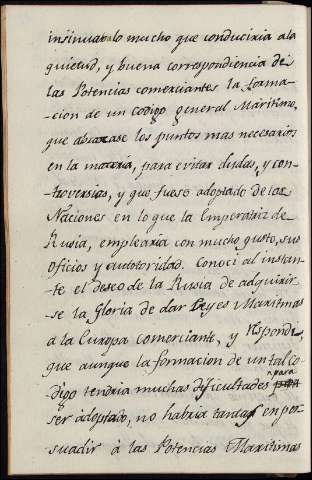 insinuabalo mucho que conduciria ala
quietud, y buena correspondiencia de
las Potencias comerciantes la forma-
-cion de un codigo general Maritimo,
que abrazase los puntos mas necesarios
en la materia, para evitar dudas, y con-
troversias, y que fuese adoptado de las
Naciones en lo que la Emperatriz de
Rusia, emplearia con mucho gusto, sus
oficios y autoridad. Conoci al instan-
te el deseo de la Rusia de adquirir-
se la Gloria de dar Leyes Maritimas
a la Europa comerciante, y respondi,
que aunque la formacion de un tal co-
digo tendria muchas dificultades para
ser adoptado, no habria tantas en per-
suadir à las Potencias Maritimas